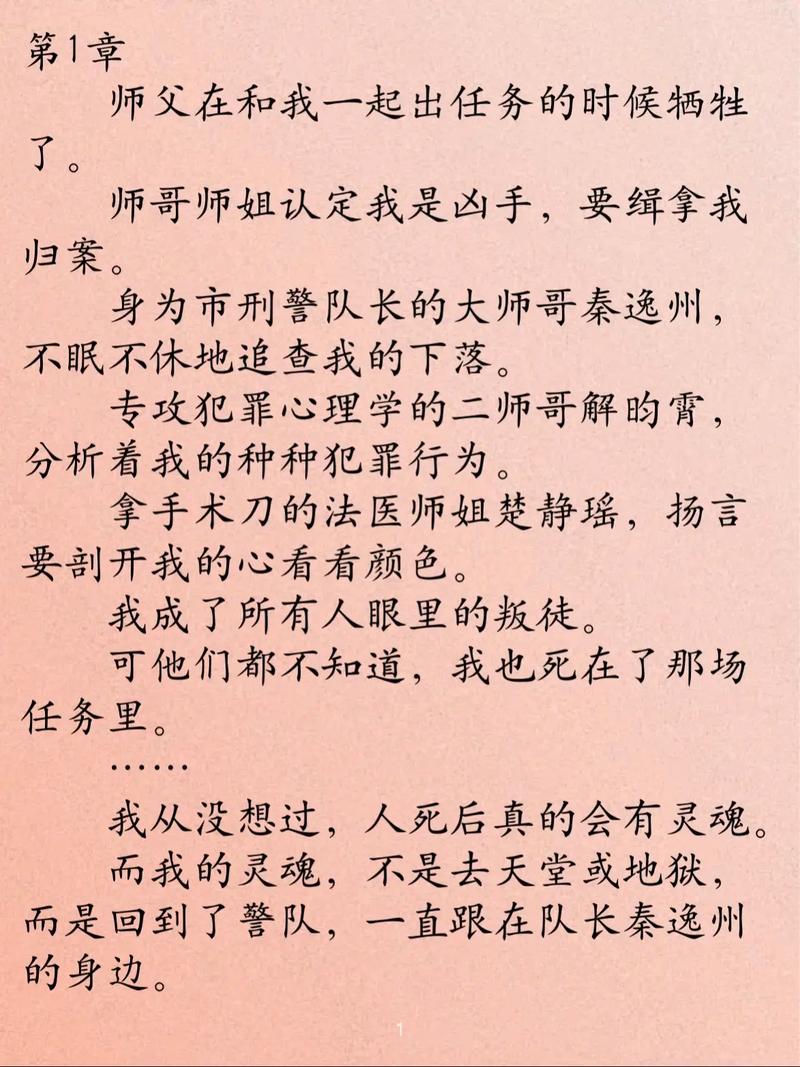 第1章
师父在和我一起出任务的时候牺牲
了。
师哥师姐认定我是凶手，要缉拿我
归案。
身为市刑警队长的大师哥秦逸州，
不眠不休地追查我的下落。
专攻犯罪心理学的二师哥解昀霄，
分析着我的种种犯罪行为。
拿手术刀的法医师姐楚静瑶，扬言
要剖开我的心看看颜色。
我成了所有人眼里的叛徒。
可他们都不知道，我也死在了那场
任务里。
……
我从没想过，人死后真的会有灵魂。
而我的灵魂，不是去天堂或地狱，
而是回到了警队，一直跟在队长秦逸州
的身边。
1